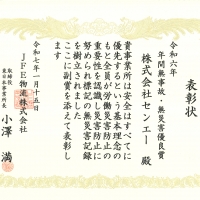 表彰状
令和六年
年間無事故・無災害優良賞
株式会社センエー 殿
貴事業所は安全はすべてに
優先するという基本理念の
もと全員が労働災害防止の
重要性を認識し災害防止に
努められ標記の無災害記録
を樹立されました
ここに副賞を添えて表彰し
ます
令和七年一月十五日
JFE物流株式会社
取締役
東日本事業所長 小澤 満